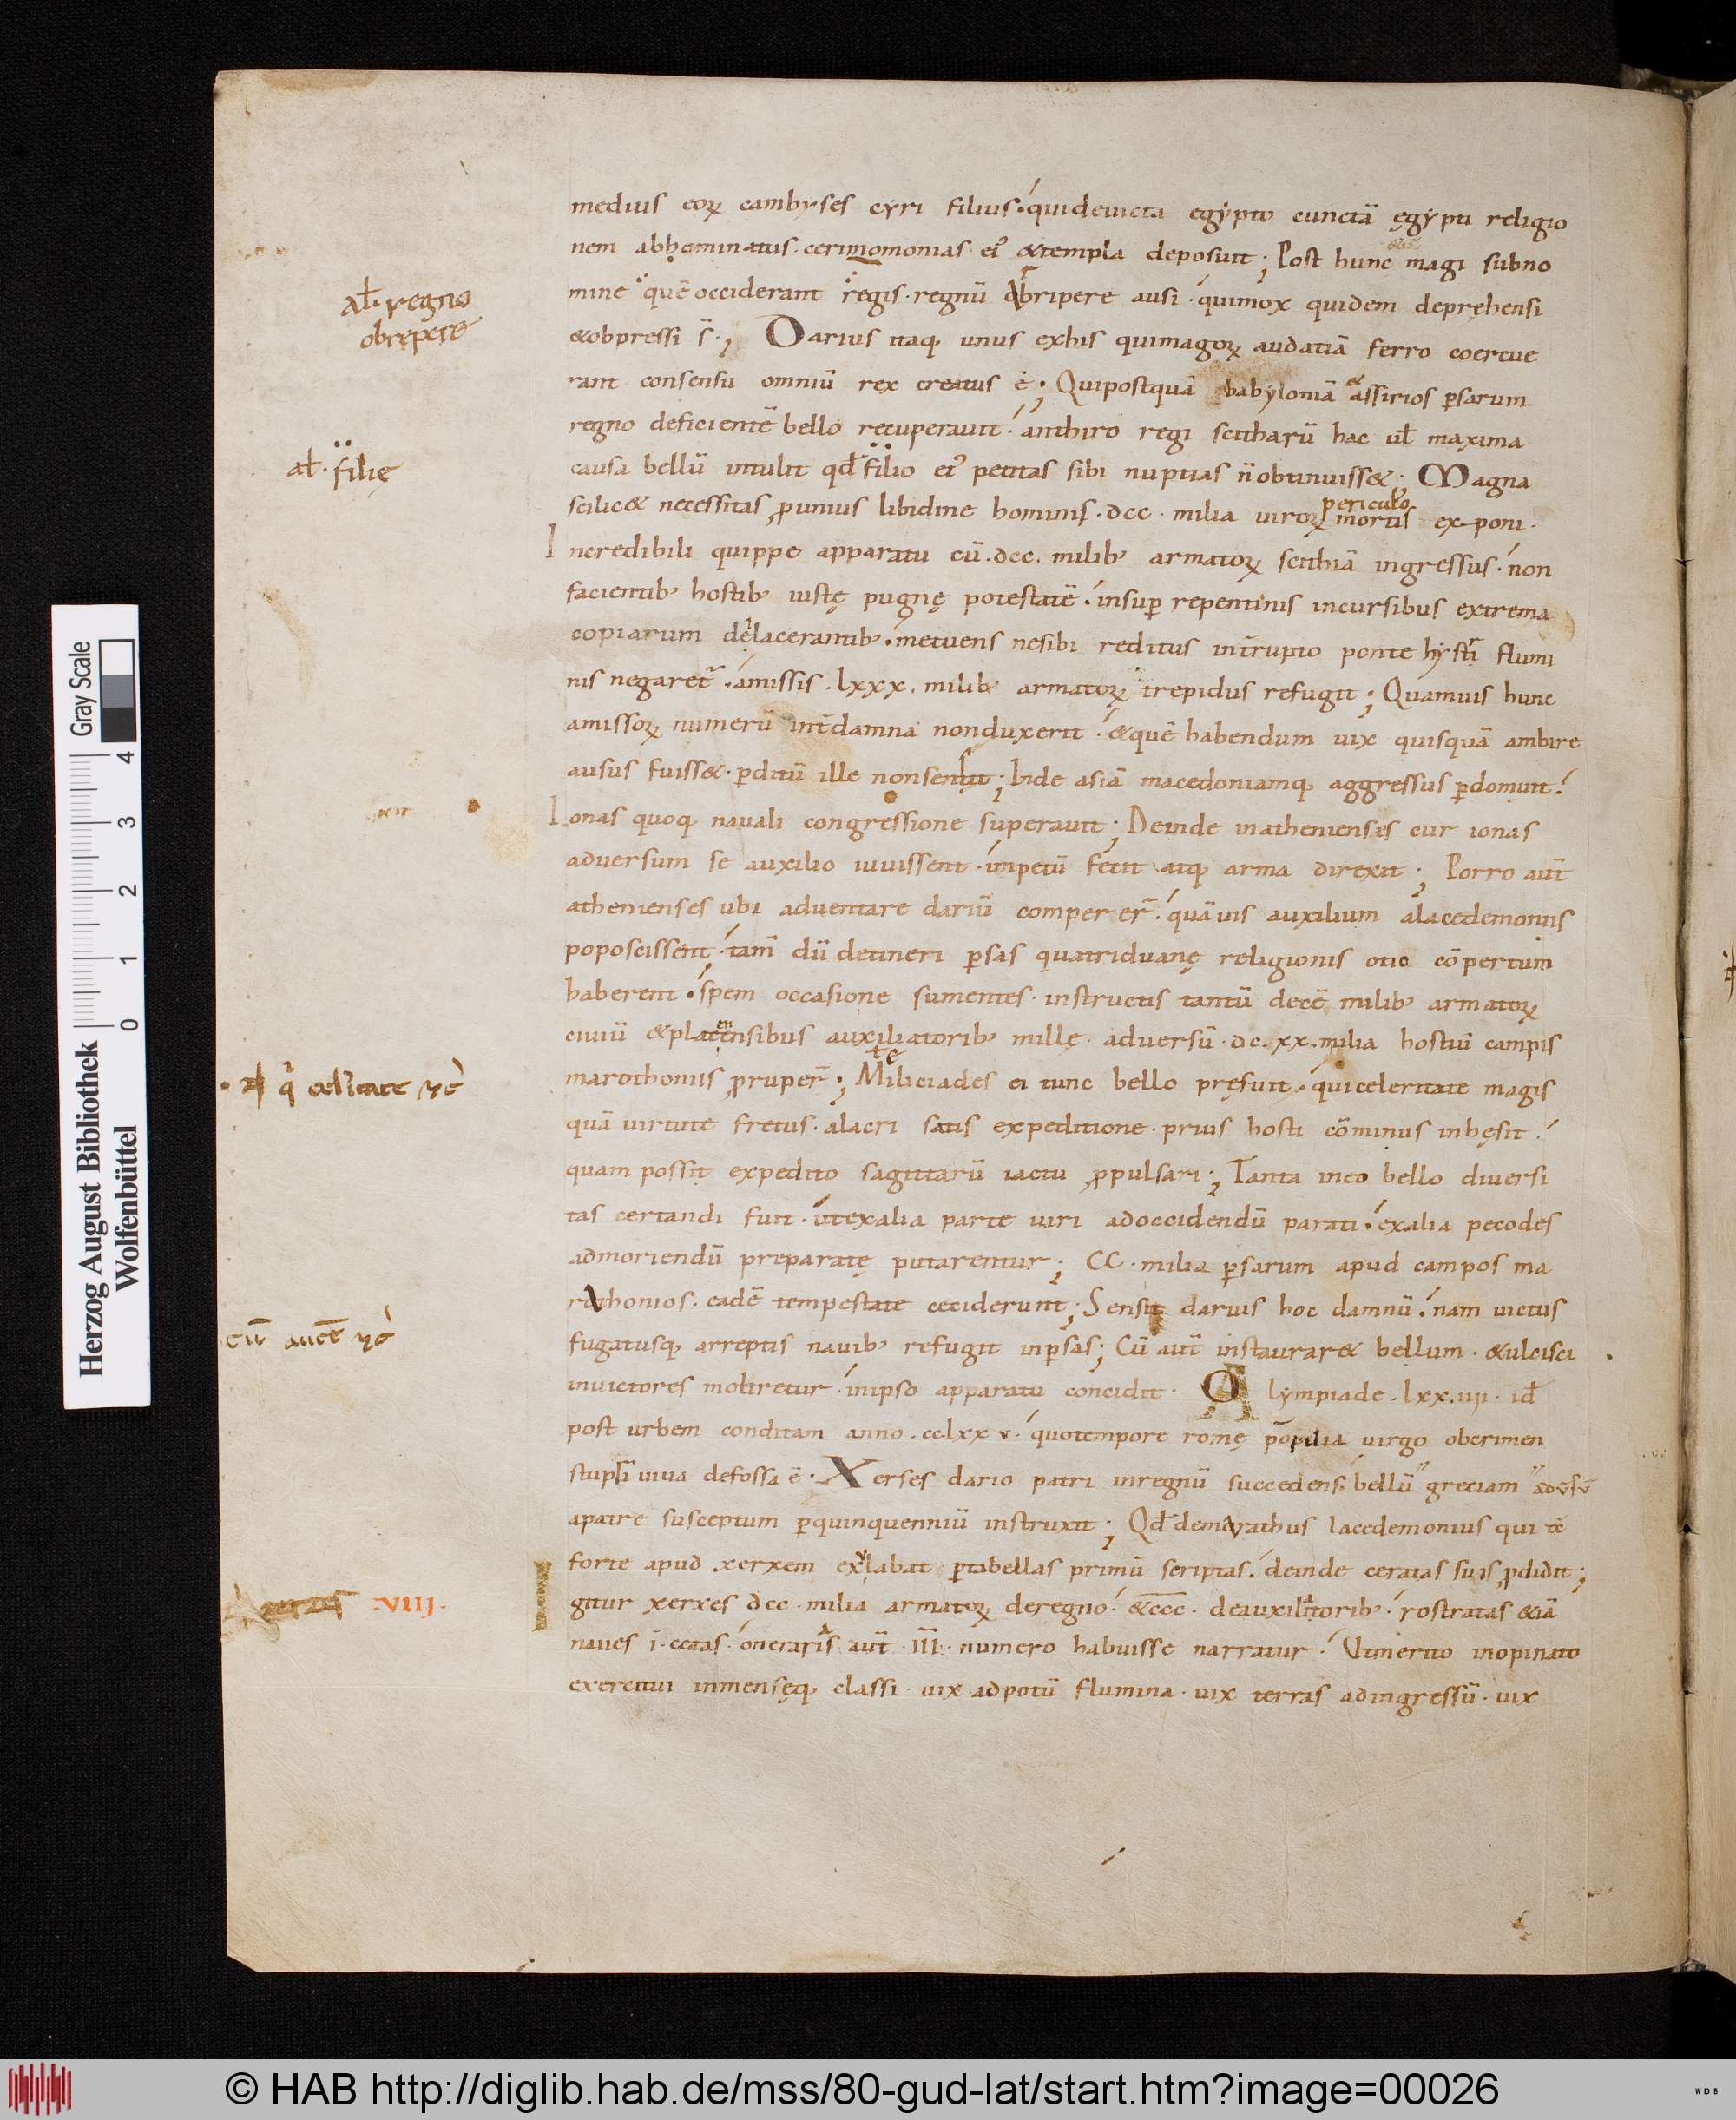 medius eoꝝ cambyses cyri filius. qui deuicta egypto cunctā ęgypti religio
nem abhominatus. cerimomonias ei᾽ & templa deposuit; Post hunc magi sub no
mine quē occiderant regis. regnū obripere ausi. qui mox quidem deprehensi
al̄. regno
obrepere
& obpressi s̄.; Darius itaq; unus ex his qui magoꝝ audatiā ferro coercue
rant consensu omniū rex creatus ē; Qui postquā babyloniā et assirios ꝑsarum
regno deficientē bello recuperauit. anthiro regi scitharū hac ul̄ maxima
al̄. filię
causa bellū intulit qd̄ filio ei᾽ petitas sibi nuptias n̄ obtinuiss&; Magna
scilic& necessitas ꝓ unius libidine hominis. dcc. milia uiroꝝ periculo mortis exponi.
Incredibili quippe apparatu cū. dcc. milib᾽ armatoꝝ scithiā ingressus. non
facientib᾽ hostib᾽ iustę pugnę potestatē. insuꝑ repentinis incursibus extrema
copiarum dilacerantib᾽. metuens ne sibi reditus int̄rupto ponte hystri flumi
nis negaret᾽. amissis. lxxx. milib᾽ armatoꝝ trepidus refugit; Quamuis hunc
amissoꝝ numerū int̄ damna non duxerit. & quē habendum uix quisquā ambire
ausus fuiss&. ꝑditū ille non sensit; Inde asiā macedoniamq; aggressus ꝑdomuit.
Ionas quoq; nauali congressione superauit; Deinde in athenienses cur ionas
aduersum se auxilio iuuissent. impetū fecit atq; arma direxit; Porro aut̄
athenienses ubi aduentare dariū comperer̄. quāuis auxilium a lacedemoniis
poposcissent. tam̄ dū detineri ꝑsas quatriduanę religionis otio cōpertum
haberent. spem occasione sumentes. instructis tantū decē milib᾽ armatoꝝ
ciuiū & placensibus auxiliatorib᾽ mille. aduersū. dc.xx. milia hostiū campis
marothoniis ꝓruper̄; Milciades ei tunc bello pręfuit. qui celeritate magis
quā uirtute fretus. alacri satis expeditione. prius hosti cōminus inhęsit.
quam possit expedito sagittarū iactu ꝓpulsari; Tanta in eo bello diuersi
tas certandi fuit. ut ex alia parte uiri ad occidendū parati. ex alia pecodes
ad moriendū preparatę putarentur; CC. milia ꝑsarum apud campos ma
rathonios. eadē tempestate ceciderunt; Sensit darius hoc damnū. nam uictus
fugatusq; arreptis nauib᾽ refugit in ꝑsas; Cū aut̄ instaurar& bellum. & ulcisci
in uictores moliretur. in ipso apparatu concidit. Olympiade. lxx.iiii. id̄
post urbem conditam anno. cclxxv. quo tempore romę pōpilia uirgo ob crimen
stupri uiua defossa ē. Xerses dario patri in regnū succedens. bellū greciam aduersū
a patre susceptum ꝑ quinquenniū instruxit; Qd̄ demarathus lacedemonius qui tc̄
forte apud xerxem exulabat ꝑ tabellas primū scriptas. deinde ceratas suis ꝓdidit;
VIII.
Igitur xerxes dcc. milia armatoꝝ de regno. & ccc. de auxiliatorib᾽. rostratas &iā
naues ī. cctas. onerarias aut̄ iii. numero habuisse narratur. Ut merito inopinato
exercitui inmensęq; classi. uix ad potū flumina. uix terras ad ingressū. uix
Herzog August Bibliothek
Wolfenbüttel
0 1 2 3 4
Gray Scale
© HAB http://diglib.hab.de/mss/80-gud-lat/start.htm?image=00026
WDB